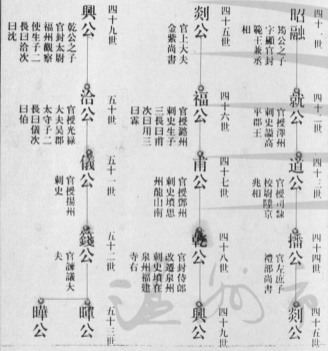 四十一世
昭融
公之子
字顯官封
範王兼丞
相
四十二世
就公
官授澤州
刺史諡高
平郡王
四十三世
道公
官授司隸
校尉陸京
兆相
四十四世
播公
官左庶子
禮部尚書
四十五世
剡公
四十五世
剡公
官上大夫
金紫尚書
四十六世
福公
官授潞州
刺史生子
三長曰甫
次曰用三
曰露
四十七世
甫公
官授鄭州
刺史墳思
州龍山南
四十八世
乾公
官封侍郎
改遷泉州
刺史墳在
泉州福建
寺右
四十九世
興公
四十九世
興公
乾公之子
官封太尉
福州觀察
使生子二
長曰洽次
曰沈
五十世
洽公
官授光祿
大夫吳郡
太守子二
長曰儀次
曰伯
五十一世
儀公
官授揚州
刺史
五十二世
錢公
官諫議大
夫
五十三世
暉公
曄公